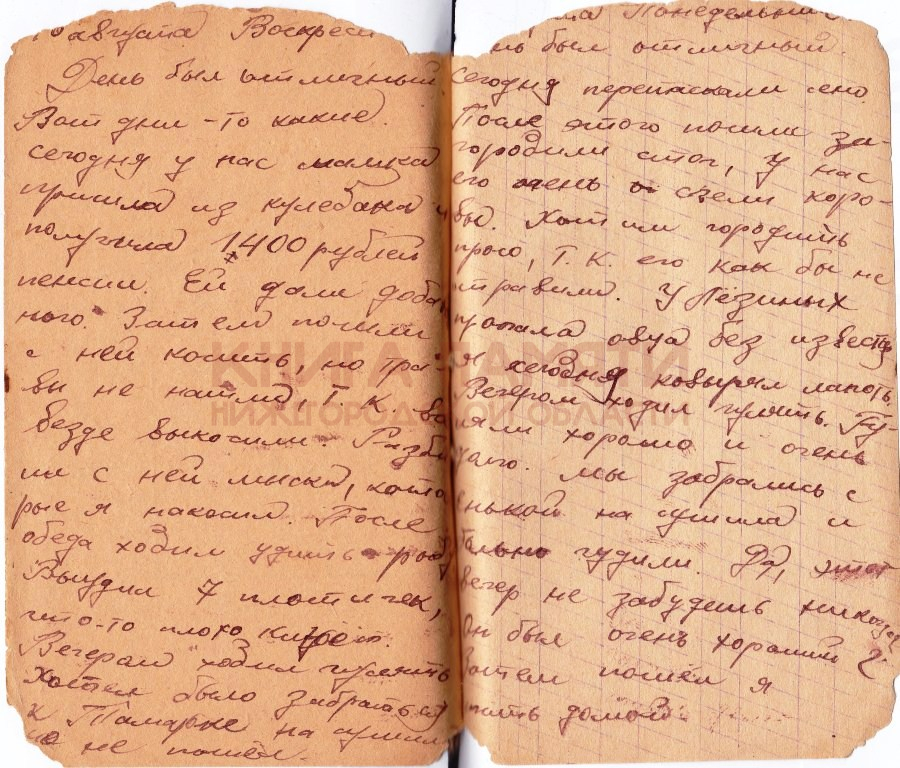 августа Воскресе
День был отличный
Вот дни-то какие.
сегодня у нас мамка
пришла из кулебака и
получила 1400 рублей
пенсии. Ей дали доба
ного. Затем пошли
с ней косить, но тра-
вы не нашли Т.К. ва
везде выкосили. Разби
ли с ней мнски, кото
рые я накосил. После
обеда ходил удить рыб
Выудил 7 плотичек,
что-то плохо
Вечерам ходил гулять
Хотел было забраться
к Тамарке на сушил
но не пошёл.
та Понедельник
нь был отличный.
Сегодня перетаскали сено.
После этого пошли за-
городили стог, У нас
его очень съели коро-
вы. Хотим городить
просо, Т.К. его как бы не
стравили. У Лёзиных
пропала овца без известь
я сегодня ковырял лапоть.
Вечером ходил гулять. Гу-
ляли хорошо и очень
долго. Мы забрались с
нькой на сушила и
больно гудили. Да, этот
вечер не забудешь никогда
Он был очень хороший
Затем пошёл я
спать домой.
КНИГА ПАМЯТИ
НИЖЕГОРОДСКОЙ ОБЛАСТИ